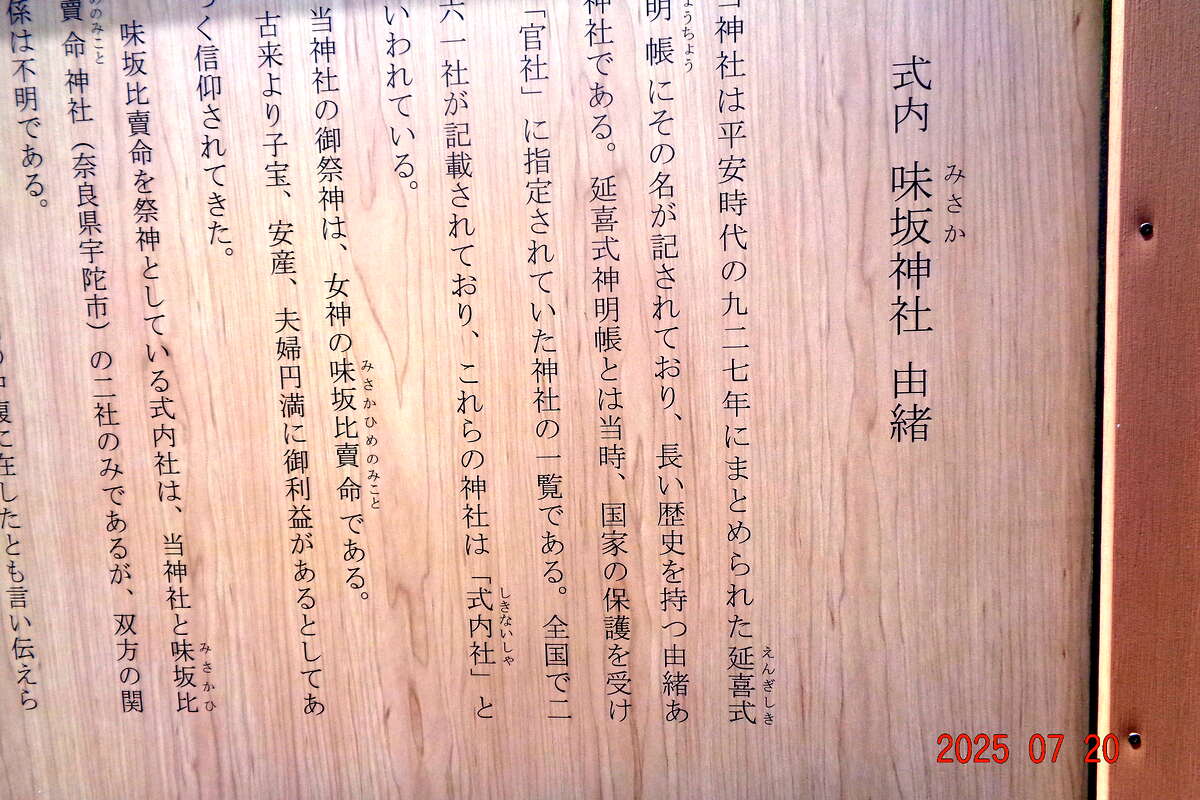 式内 味坂神社 由緒
みさか
当神社は平安時代の九二七年にまとめられた延喜式
えんぎしき
明帳にその名が記されており、長い歴史を持つ由緒あ
ようちょう
神社である。延喜式神明帳とは当時、国家の保護を受け
「官社」に指定されていた神社の一覧である。全国で二
六一社が記載されており、これらの神社は「式内社」と
しきないしゃ
いわれている。
当神社の御祭神は、女神の味坂比賣命である。
みさかひめのみこと
古来より子宝、安産、夫婦円満に御利益があるとしてあ
く信仰されてきた。
味坂比賣命を祭神としている式内社は、当神社と味坂比
みさかひ
賣命神社（奈良県宇陀市）の二社のみであるが、双方の関
めのみこと
係は不明である。
に在したとも言い伝えら
2025 07 20